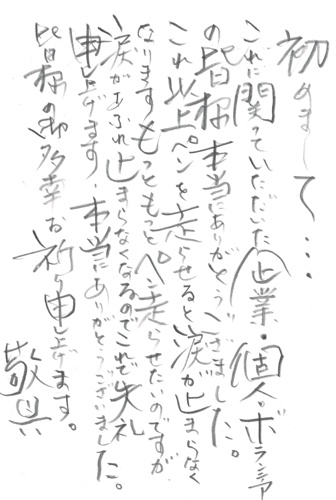 初めまして…
これに関っていただいた企業・個人・ボランティア
の皆様本当にありがとうございました。
これ以上ペンを走らせると涙が止まらなく
なります。もっともっとペン走らせたいのですが
涙があふれ止まらなくなるのでこれで失礼
申し上げます。本当にありがとうございました。
皆様の御多幸お祈り申し上げます。
敬具